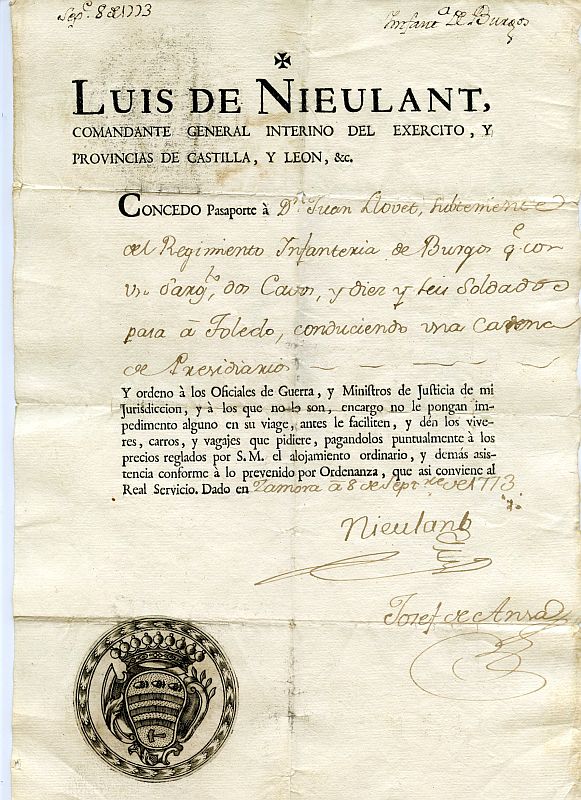 Sepe. 8 de 1773
Infanª. de Burgos
LUIS DE NIEULANT,
COMANDANTE GENERAL INTERINO DEL EXERCITO, Y
PROVINCIAS DE CASTILLA, Y LEON, &c.
CONCEDO Pasaporte à Dn. Juan Llovet, subteniente
del Regimiento Infanteria de Burgos qe con
un Sargto, dos Cavos, y diez y seis Soldados
pasa à Toledo, conduciendo una Cadena
de Presidiarios
Y ordeno à los Oficiales de Guerra, y Ministros de Justicia de mi
Jurisdiccion, y à los que no lo son, encargo no le pongan im-
pedimento alguno en su viage, antes le faciliten, y dén los vive-
res, carros, y vagajes que pidiere, pagandolos puntualmente à los
precios reglados por S.M. el alojamiento ordinario, y demás asis-
tencia conforme à lo prevenido por Ordenanza, que asi conviene al
Real Servicio. Dado en Zamora à 8 de Septre de 1773
Nieulant
Josef de Ansa